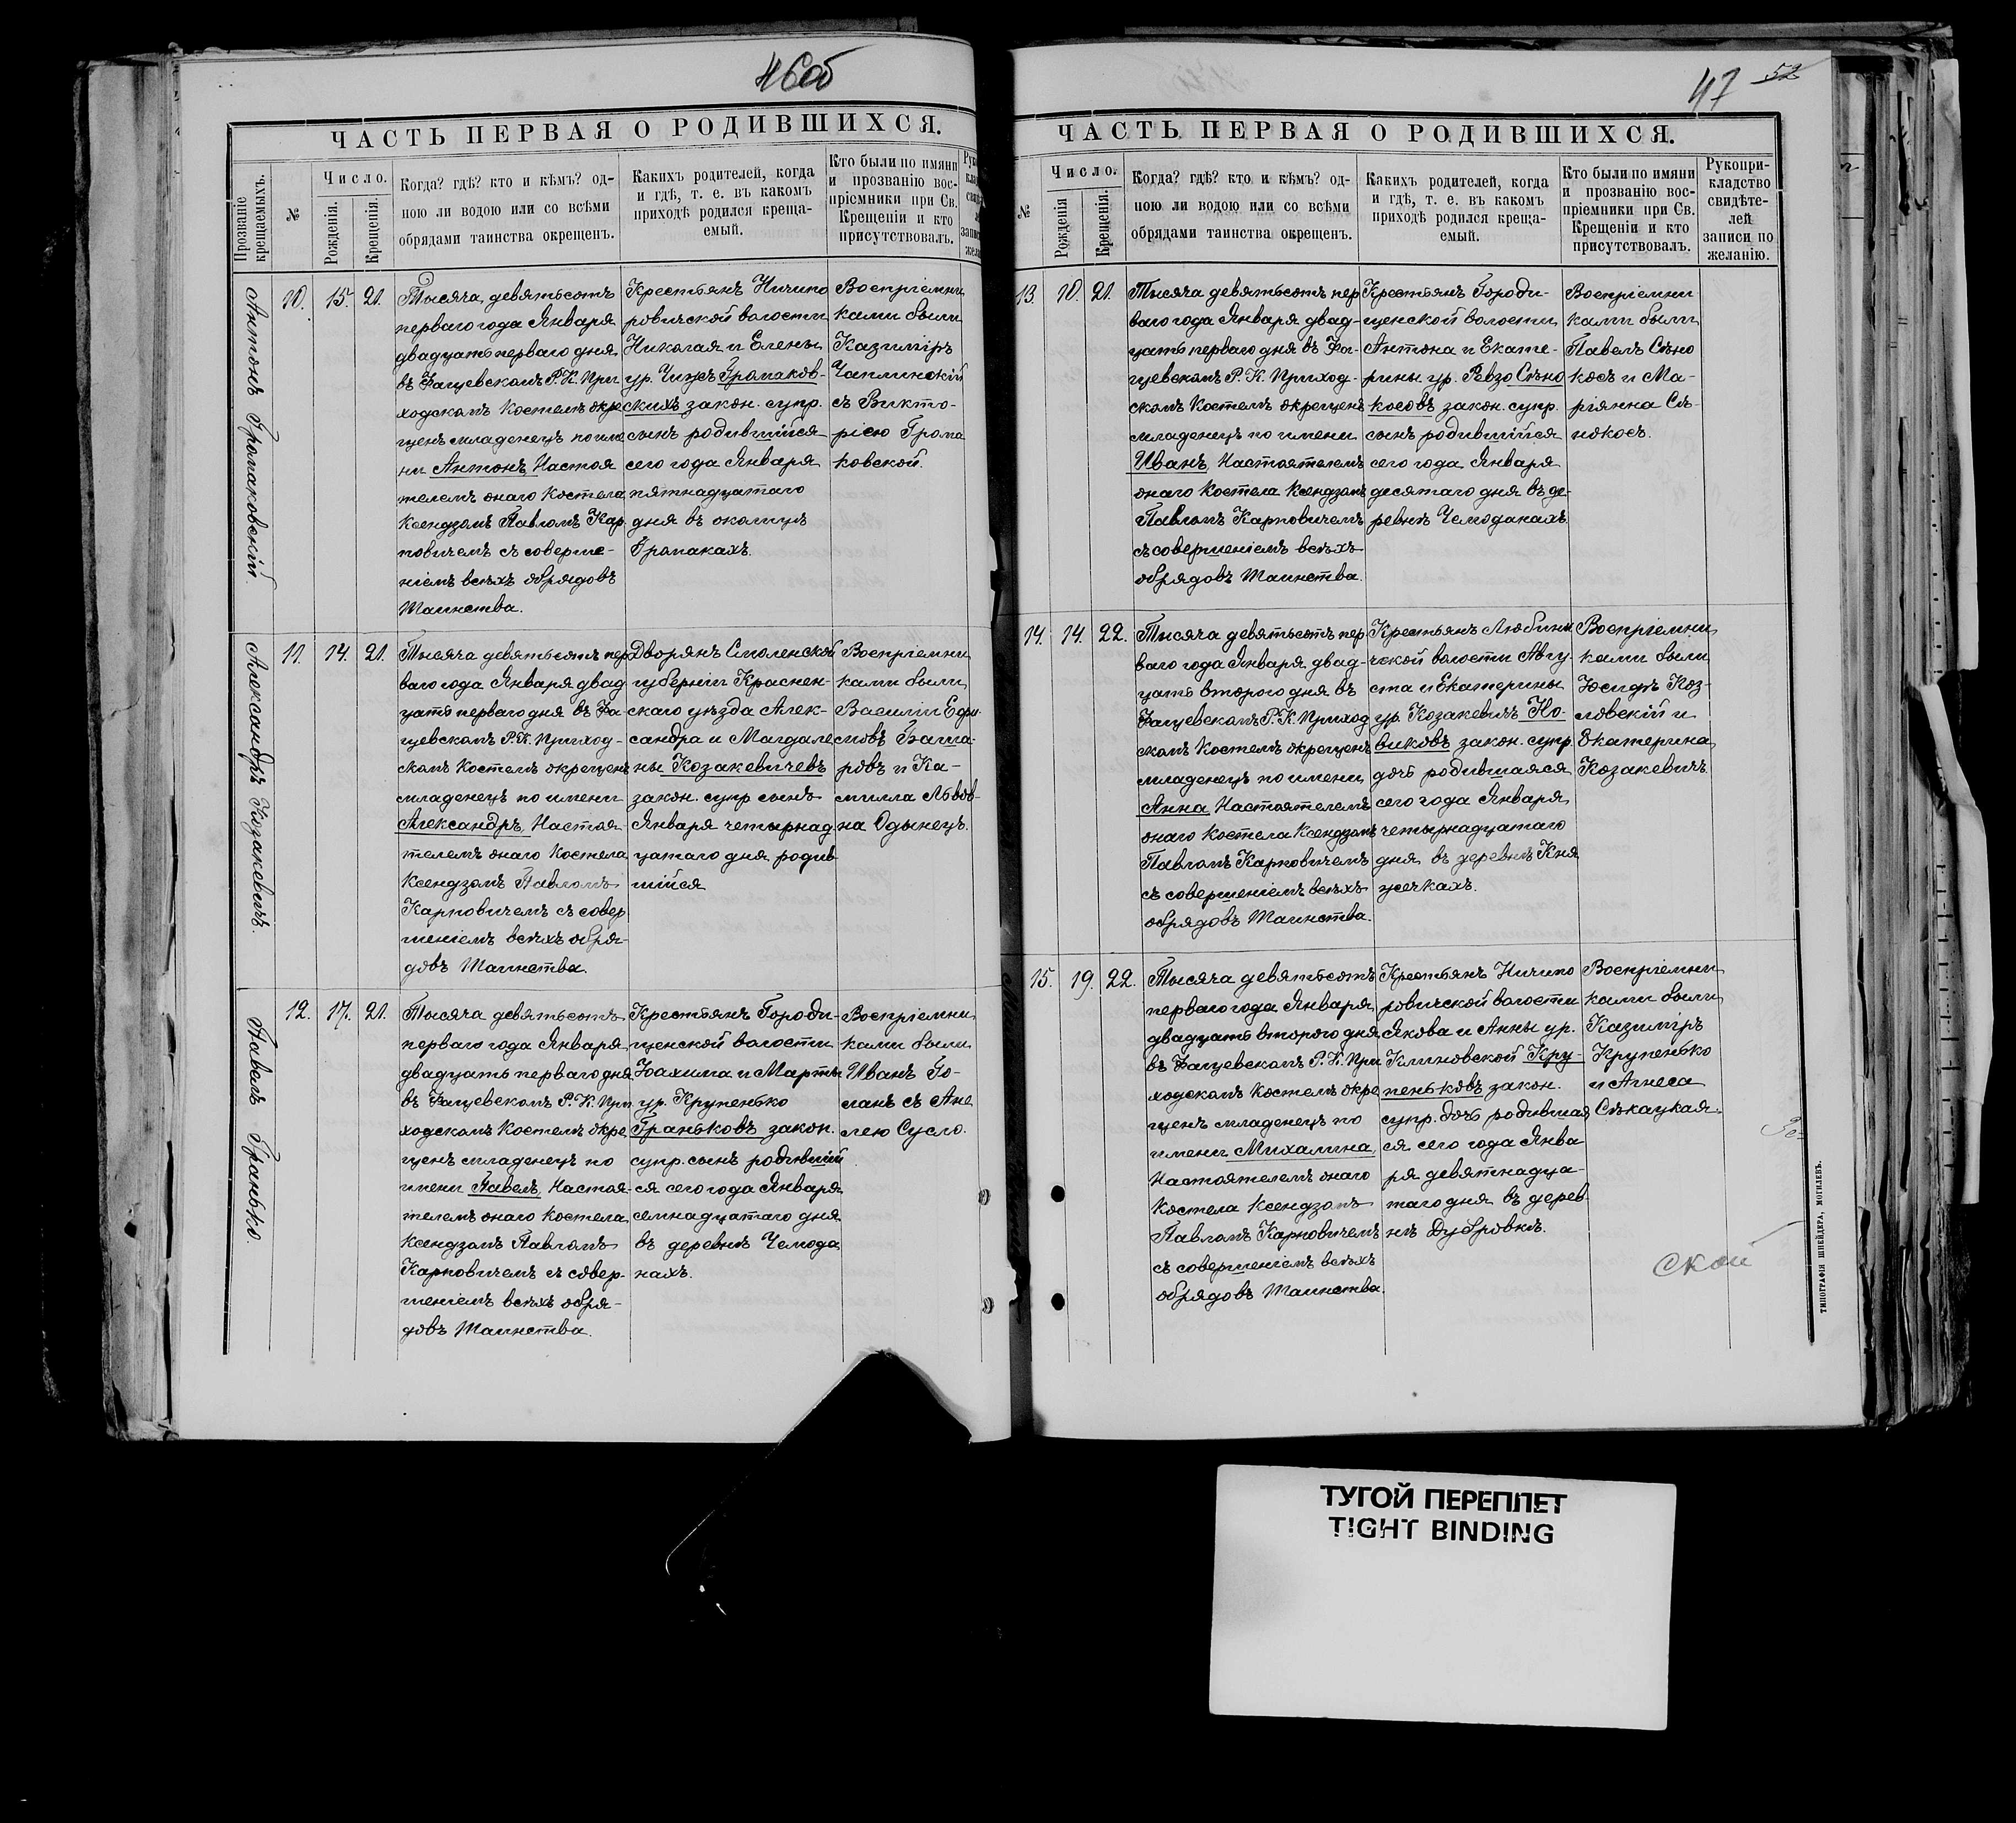 46об
ЧАСТЬ ПЕРВАЯ О РОДИВШИХСЯ.
Прозваніе крещаемыхъ.
№
Число.
Рожденія.
Крещенія.
Когда? гдѣ? кто и кѣмъ? од-
ною ли водою или со всѣми
обрядами таинства окрещенъ.
Какихъ родителей, когда
и гдѣ, т. е. въ какомъ
приходѣ родился креща-
емый.
Кто были по имяни
и прозванію вос-
пріемники при Св.
Крещеніи и кто
присутствовалъ.
Антонъ Громаковскій.
10.
15.
21.
Тысяча девятьсотъ
перваго года Января
двадцать перваго дня
въ Фащевскомъ Р. К. При
ходскомъ Костелѣ окре
щенъ младенецъ по име
ни Антонъ Настоя
телемъ онаго Костела
Ксендзомъ Павломъ Кар
повичемъ съ соверше-
ніемъ всѣхъ обрядовъ
Таинства.
Крестьянъ Ничипо
ровичской волости
Николая и Елены
ур. Чижъ Громаков-
скихъ закон. супр.
сынъ родившійся
сего года Января
пятнадцатаго
дня въ околицѣ
Громакахъ.
Воспріемни
ками были
Казиміръ
Чаплинскій
съ Викто-
ріею Грома
ковской.
Александръ Козакевичъ.
11.
14.
21.
Тысяча девятьсотъ пер
ваго года Января двад
цать перваго дня въ Фа
щевскомъ Р. К. Приход-
скомъ Костелѣ окрещенъ
младенецъ по имени
Александръ, Настоя
телемъ онаго Костела
Ксендзомъ Павломъ
Карповичемъ съ совер
шеніемъ всѣхъ обря-
довъ Таинства.
Дворянъ Смоленской
губерніи Краснен-
скаго уѣзда Алек-
сандра и Магдале
ны Козакевичевъ
закон. супр сынъ
Января четырнад
цатаго дня родив
шійся
Воспріемни
ками были
Василій Ефи
мовъ
ровъ и Ка-
милла Львов-
на Одынецъ.
Павелъ Гранько.
12.
17.
21.
Тысяча девятьсотъ
перваго года Января
двадцать перваго дня
въ Фащевскомъ Р. К. При
ходскомъ Костелѣ окре
щенъ младенецъ по
имени Павелъ Настоя-
телемъ онаго Костела
Ксендзомъ Павломъ
Карповичемъ съ совер-
шеніемъ всѣхъ обря-
довъ Таинства.
Крестьянъ Городи-
щенской волости
Іоахима и Марты
ур. Крупенько
Граньковъ закон.
супр. сынъ родившій
ся сего года Января
семнадцатаго дня
въ деревнѣ Чемода
нахъ.
Воспріемни
ками были
Иванъ Го-
ланъ съ Ане
лею Сусло.
47 52
ЧАСТЬ ПЕРВАЯ О РОДИВШИХСЯ.
№
Число.
Рожденія
Крещенія.
Когда? гдѣ? кто и кѣмъ? од-
ною ли водою или со всѣми
обрядами таинства окрещенъ.
Какихъ родителей, когда
и гдѣ, т. е. въ какомъ
приходѣ родился креща-
емый.
Кто были по имяни
и прозванію вос-
пріемники при Св.
Крещеніи и кто
присутствовалъ.
Рукопри-
кладство
свидѣте-
лей
записи по
желанію.
13.
10.
21.
Тысяча девятьсотъ пер
ваго года Января двад-
цать перваго дня въ Фа-
щевскомъ Р. К. Приход-
скомъ Костелѣ окрещенъ
младенецъ по имени
Иванъ, Настоятелемъ
онаго Костела Ксендзомъ
Павломъ Карповичемъ
съ совершеніемъ всѣхъ
обрядовъ Таинства.
Крестьянъ Городи-
щенской волости
Антона и Екате-
рины ур. Ревзо Сѣно
косовъ закон. супр.
сынъ родившійся
сего года Января
десятаго дня въ де-
ревнѣ Чемоданахъ.
Воспріемни
ками были
Павелъ Сѣно
косъ и Ма-
ріянна Сѣ-
нокосъ.
14.
14.
22.
Тысяча девятьсотъ пер
ваго года Января двад-
цать второго дня въ
Фащевскомъ Р. К. Приход
скомъ Костелѣ окрещенъ
младенецъ по имени
Анна Настоятелемъ
онаго Костела Ксендзомъ
Павломъ Карповичемъ
съ совершеніемъ всѣхъ
обрядовъ Таинства.
Крестьянъ Любини
чской волости Авгу
ста и Екатерины
ур. Козакевичъ Но-
виковъ закон. супр.
дочь родившаяся
сего года Января
четырнадцатаго
дня въ деревнѣ Кня
жечкахъ.
Воспріемни
ками были
Іосифъ Коз-
ловскій и
Екатерина
Козакевичъ.
15.
19.
22.
Тысяча девятьсотъ
перваго года Января
двадцать второго дня
въ Фащевскомъ Р. К. При
ходскомъ Костелѣ окре
щенъ младенецъ по
имени Михалина,
Настоятелемъ онаго
Костела Ксендзомъ
Павломъ Карповичемъ
съ совершеніемъ всѣхъ
обрядовъ Таинства.
Крестьянъ Ничипо
ровичской волости
Якова и Анны ур.
Климовской Кру-
пеньковъ закон.
супр. дочь родившая
ся сего года Янва
ря девятнадца-
таго дня въ дерев
нѣ Дубровкѣ.
Воспріемни
ками были
Казиміръ
Крупенько
и Агнеса
Сѣкацкая.
ской
ТИПОГРАФІЯ ШНЕЙДЕРА, МОГИЛЕВЪ.
ТУГОЙ ПЕРЕПЛЕТ
TIGHT BINDING